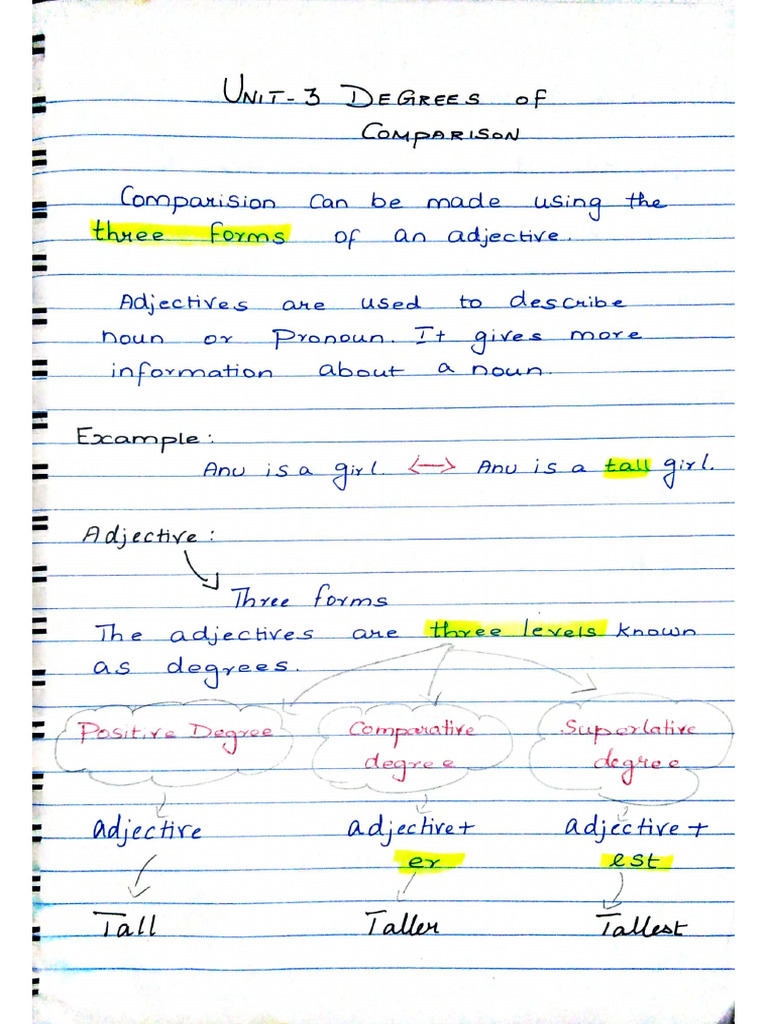 UNIT-3 DEGREES OF
COMPARISON
Comparision can be made using the
three forms of an adjective.
Adjectives are used to describe
noun or Pronoun. It gives more
information about a noun.
Example:
Anu is a girl. <--> Anu is a tall girl.
Adjective:
Three forms
The adjectives are three levels known
as degrees.
Positive Degree Comparative Superlative
degree degree
adjective adjective+ adjective+
er est
Tall Taller Tallest